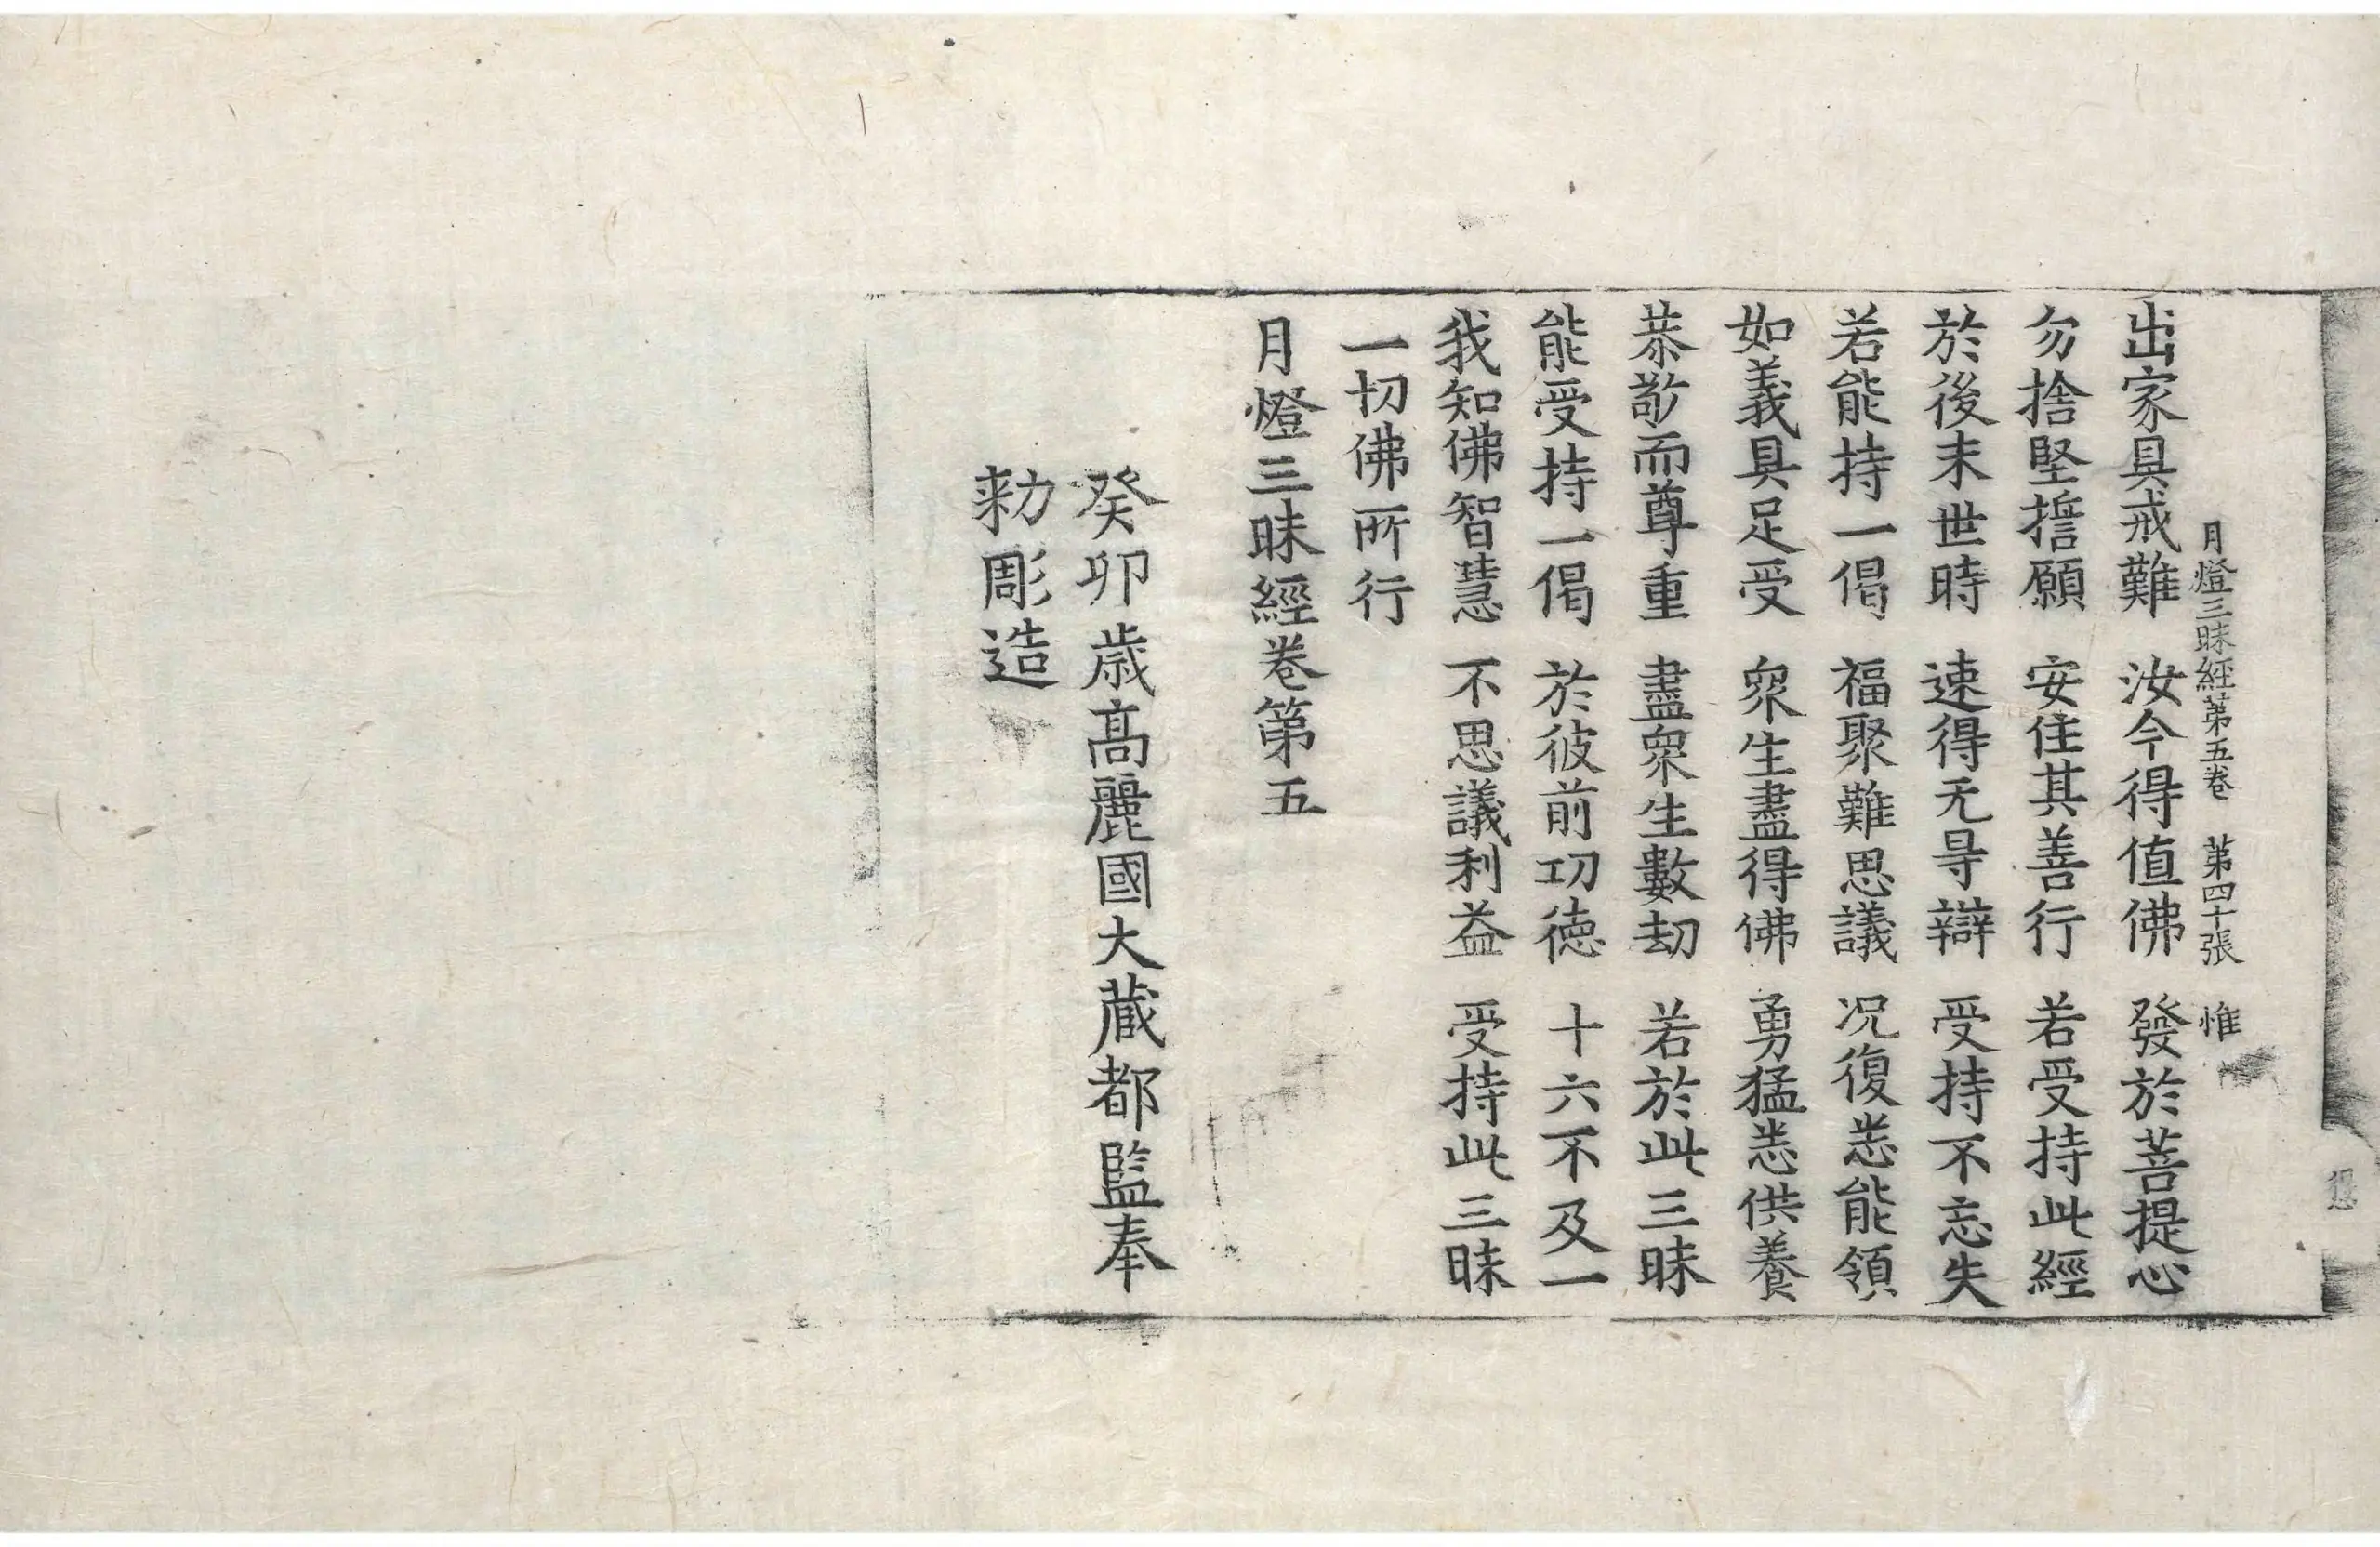 月燈三昧經第五卷 第四十張 惟
出家具戒難 汝今得值佛 發於菩提心
勿捨堅誓願 安住其善行 若受持此經
於後末世時 速得无㝵辯 受持不忘失
若能持一偈 福聚難思議 況復悉能領
如義具足受 衆生盡得佛 勇猛悉供養
恭敬而尊重 盡衆生數劫 若於此三昧
能受持一偈 於彼前功德 十六不及一
我知佛智慧 不思議利益 受持此三昧
一切佛所行
月燈三昧經卷第五
癸卯歲高麗國大藏都監奉
勅彫造